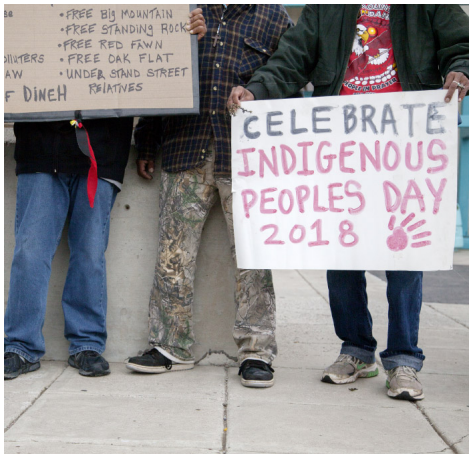 • FREE Big MOUNTAIN
• FREE STANDING ROCK
• FREE RED FAWN
• FREE OAK FLAT
• UNDER STAND STREET
RELATIVES
LLUTERS
AW
F DINEH
CELEBRATE
INDIGENOUS
PEOPLES DAY
2018